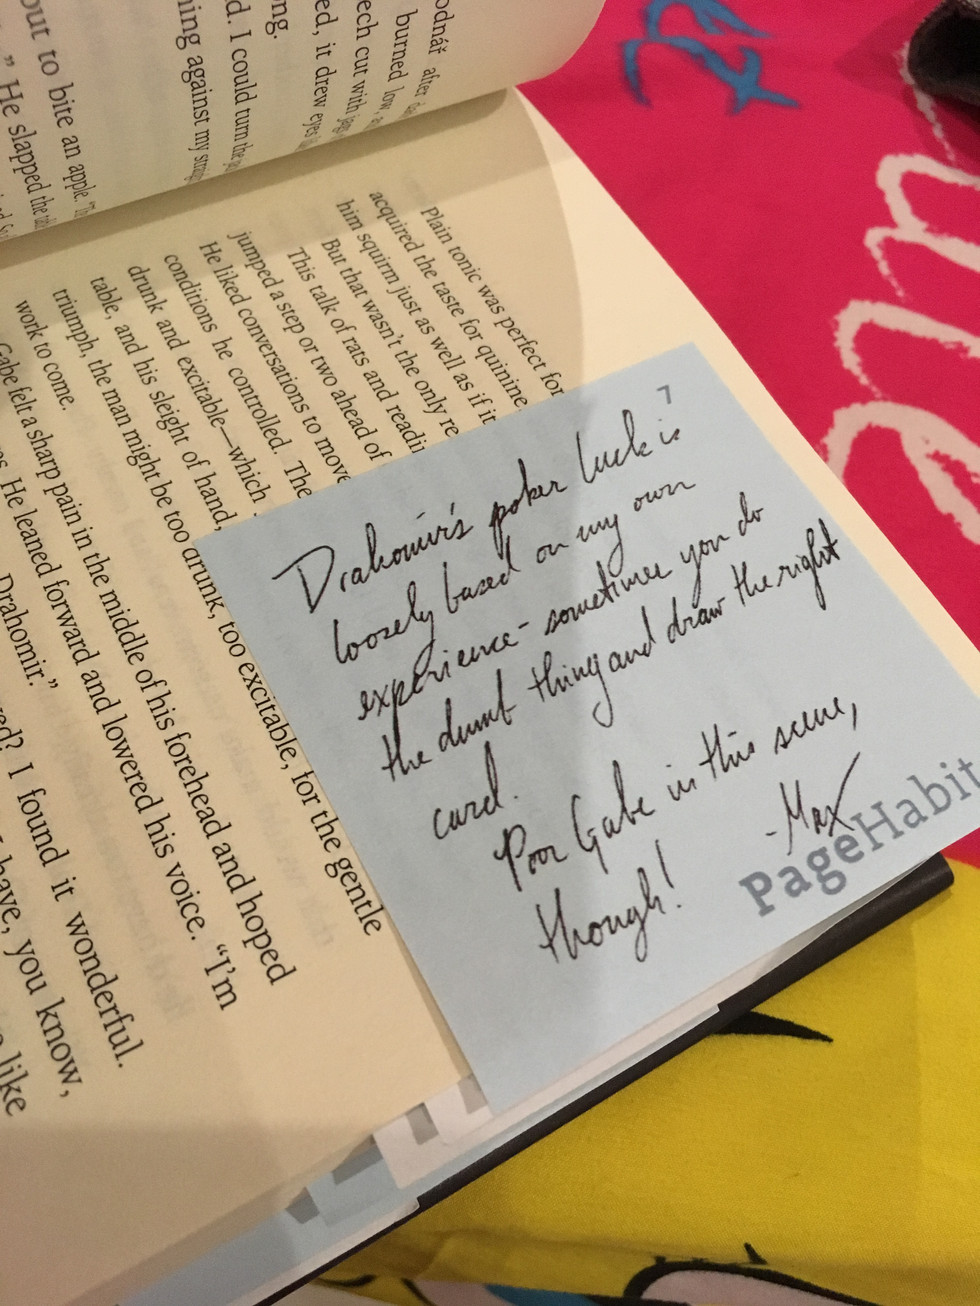 odnář after
burned low,
ech cut with
ed, it drew eyes
ng.
d. I could turn the
ning against my
out to bite an apple.
” He slapped the
Plain tonic was perfect for
acquired the taste for quinine,
him squirm just as well as if it
But that wasn’t the only re
This talk of rats and readi
jumped a step or two ahead of
He liked conversations to move
conditions he controlled. The
drunk and excitable—which
table, and his sleight of hand,
triumph, the man might be too drunk, too excitable, for the gentle
work to come.
Gabe felt a sharp pain in the middle of his forehead and hoped
ps. He leaned forward and lowered his voice. “I’m
Drahomir.”
ved? I found it wonderful.
have, you know,
like
7
Drahomir's poker luck is
loosely based on my own
experience - sometimes you do
the dumb thing and draw the right
card.
Poor Gabe in this scene,
though!
-Max
PageHabit